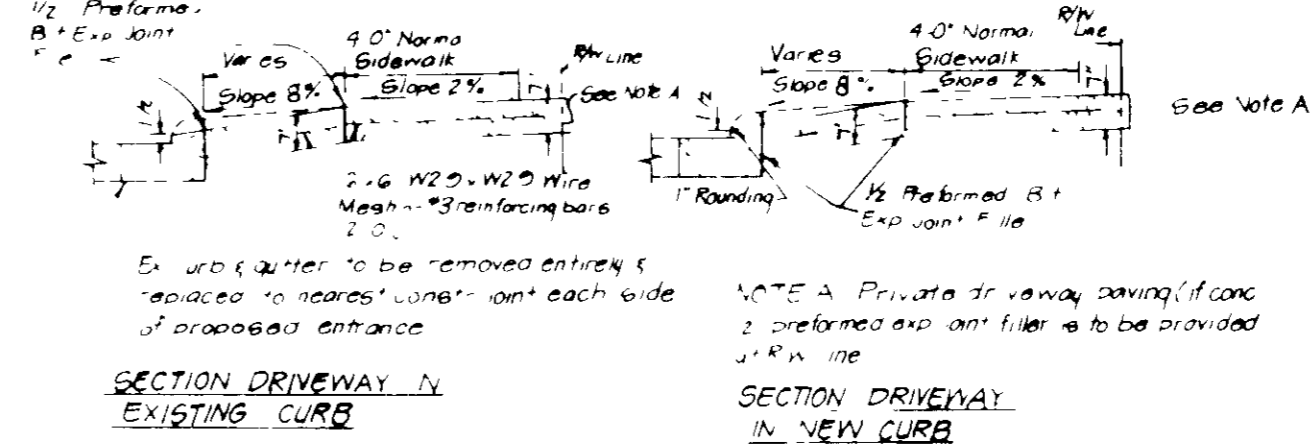 1/2 Preforme.
B + Exp Joint
Varies
Slope 8%
4 0" Norma
Sidewalk
Slope 2%
R/W Line
See Note A
W29 x W29 Wire
Mesh #3 reinforcing bars
2 0
Ex urb & gutter to be removed entirely &
replaced to nearest const joint each side
of proposed entrance
SECTION DRIVEWAY N
EXISTING CURB
Varies
Slope 8%
4 0" Normal
Sidewalk
Slope 2%
R/W Line
See Note A
1" Rounding
1/2 Preformed B +
Exp Joint F lle
NOTE A Private dr veway paving (if conc
2 preformed exp oint filler is to be provided
at R W ine
SECTION DRIVEWAY
IN NEW CURB